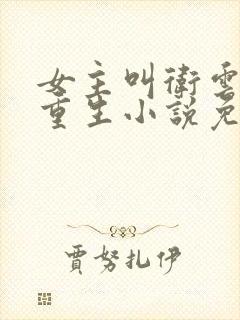 女主叫衛雲
重生小說免
賈努扎伊